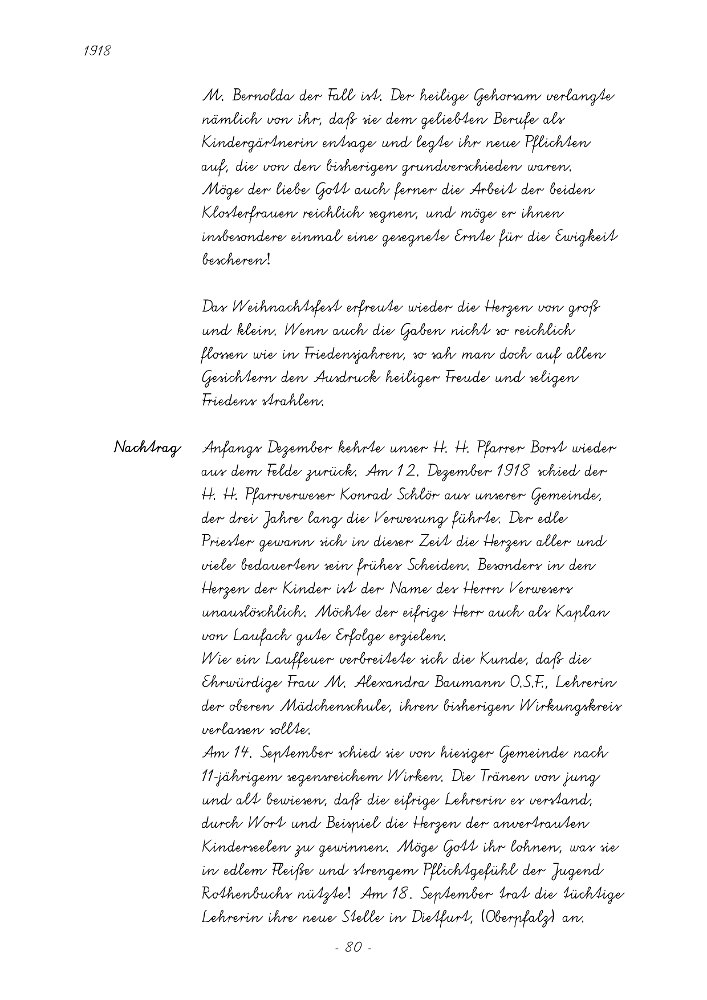 1918
M. Bernolda der Fall ist. Der heilige Gehorsam verlangte
nämlich von ihr, daß sie dem geliebten Berufe als
Kindergärtnerin entsage und legte ihr neue Pflichten
auf, die von den bisherigen grundverschieden waren.
Möge der liebe Gott auch ferner die Arbeit der beiden
Klosterfrauen reichlich segnen, und möge er ihnen
insbesondere einmal eine gesegnete Ernte für die Ewigkeit
bescheren!
Das Weihnachtsfest erfreute wieder die Herzen von groß
und klein. Wenn auch die Gaben nicht so reichlich
flossen wie in Friedensjahren, so sah man doch auf allen
Gesichtern den Ausdruck heiliger Freude und seligen
Friedens strahlen.
Nachtrag Anfangs Dezember kehrte unser H. H. Pfarrer Borst wieder
aus dem Felde zurück. Am 12. Dezember 1918 schied der
H. H. Pfarrverweser Konrad Schlör aus unserer Gemeinde,
der drei Jahre lang die Verwesung führte. Der edle
Priester gewann sich in dieser Zeit die Herzen aller und
viele bedauerten sein frühes Scheiden. Besonders in den
Herzen der Kinder ist der Name des Herrn Verwesers
unauslöschlich. Möchte der eifrige Herr auch als Kaplan
von Laufach gute Erfolge erzielen.
Wie ein Lauffeuer verbreitete sich die Kunde, daß die
Ehrwürdige Frau M. Alexandra Baumann O.S.F., Lehrerin
der oberen Mädchenschule, ihren bisherigen Wirkungskreis
verlassen sollte.
Am 14. September schied sie von hiesiger Gemeinde nach
11-jährigem segensreichem Wirken. Die Tränen von jung
und alt bewiesen, daß die eifrige Lehrerin es verstand,
durch Wort und Beispiel die Herzen der anvertrauten
Kinderseelen zu gewinnen. Möge Gott ihr lohnen, was sie
in edlem Fleiße und strengem Pflichtgefühl der Jugend
Rothenbuchs nützte! Am 18. September trat die tüchtige
Lehrerin ihre neue Stelle in Dietfurt, (Oberpfalz) an.
- 80 -